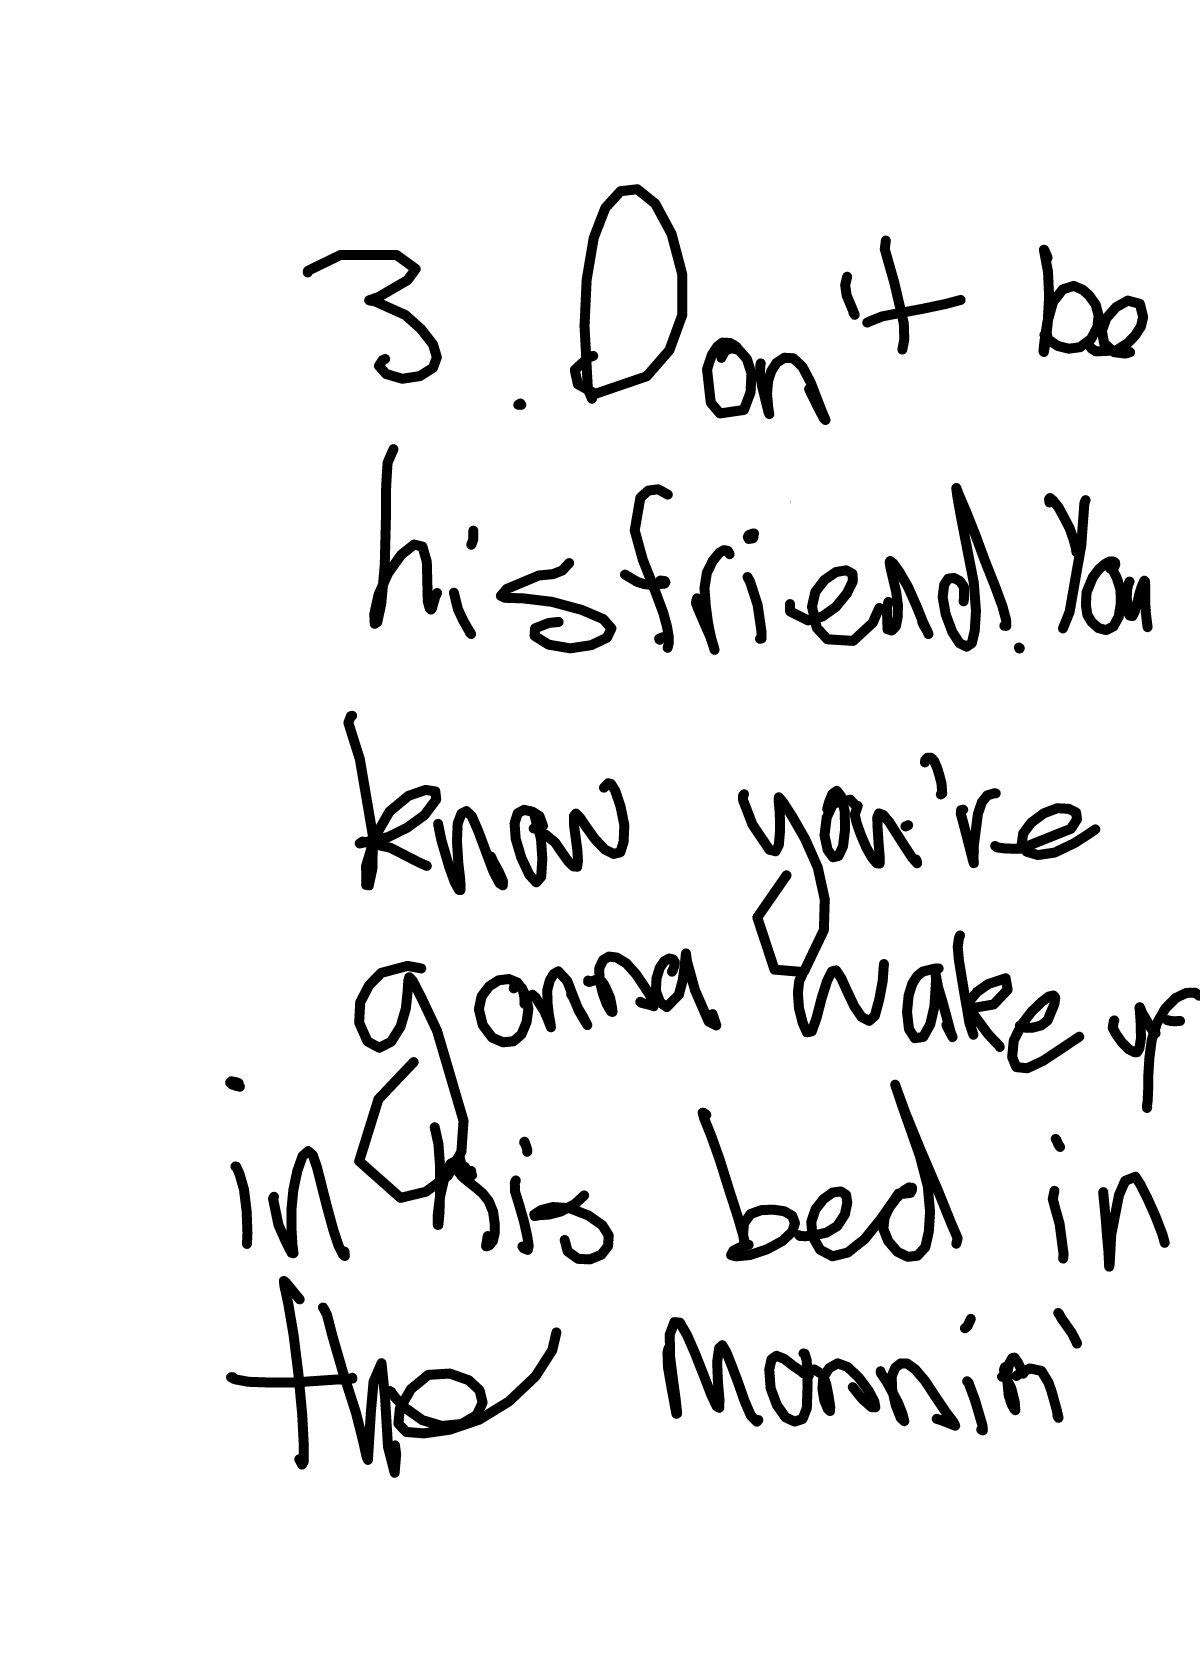 3. Don't be
his friend. You
know you're
gonna wake up
in his bed in
the mornin'